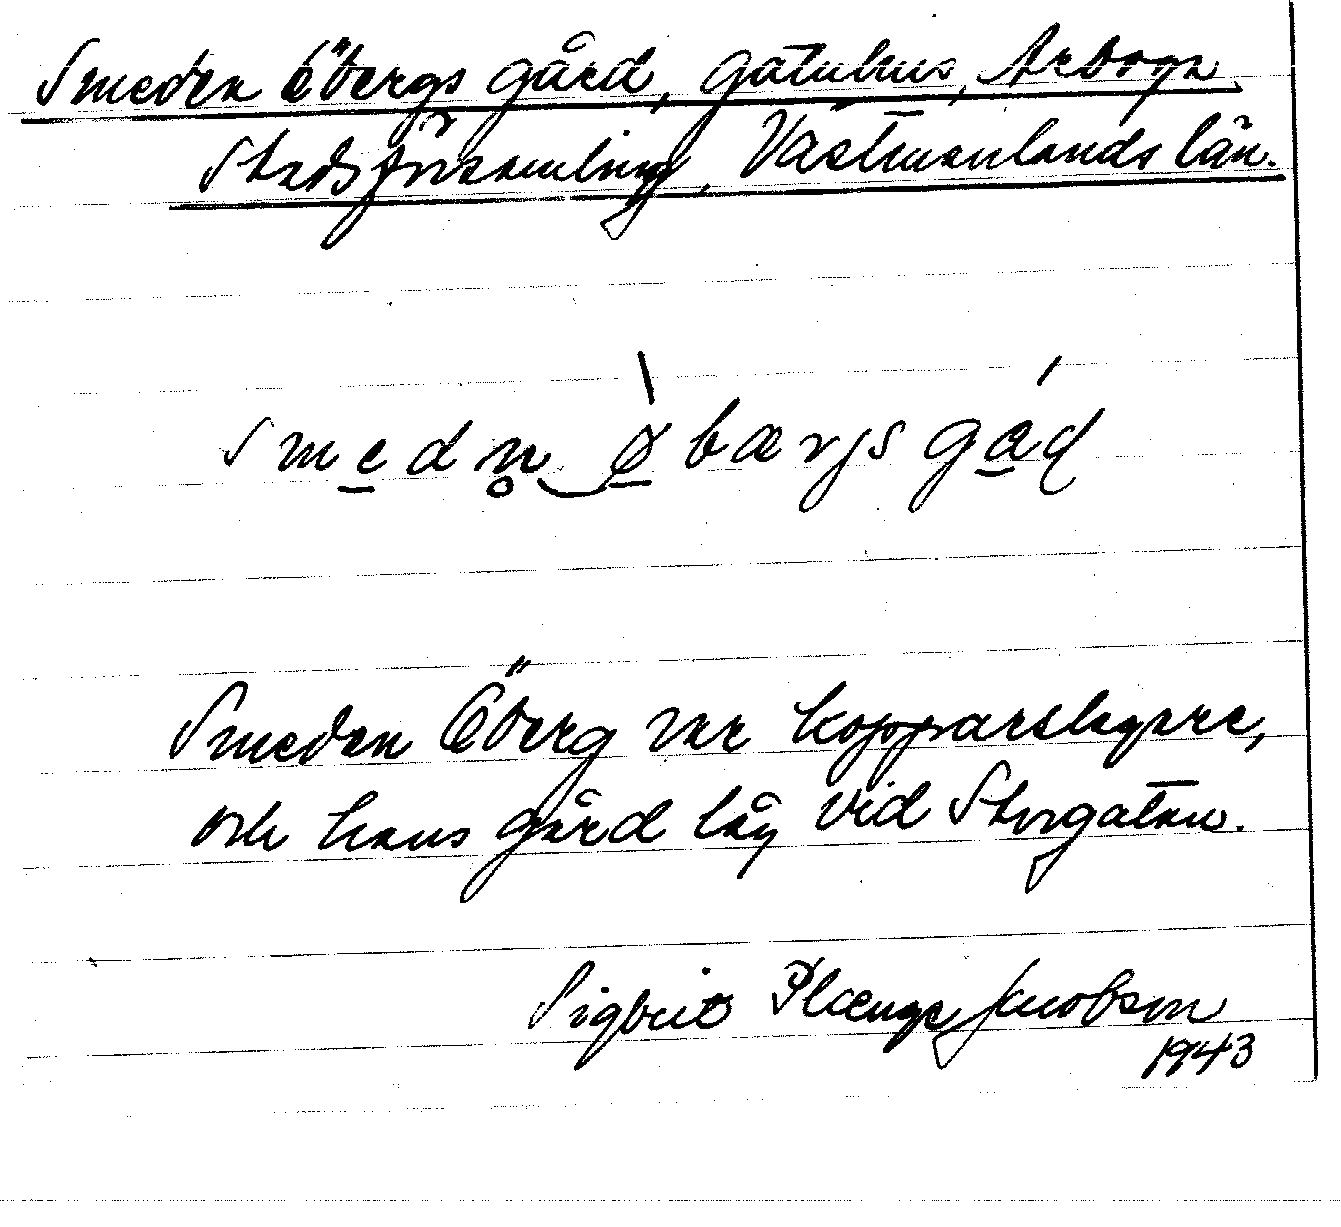 Smeden Öbergs gård, gatuhus, Arboga
Stadsförsamling, Västmanlands län.
smedn øbærjsgaɖ
Smeden Öberg var kopparslagare,
och hans gård låg vid Storgatan.
Sigbrit Plænge Jacobson
1943